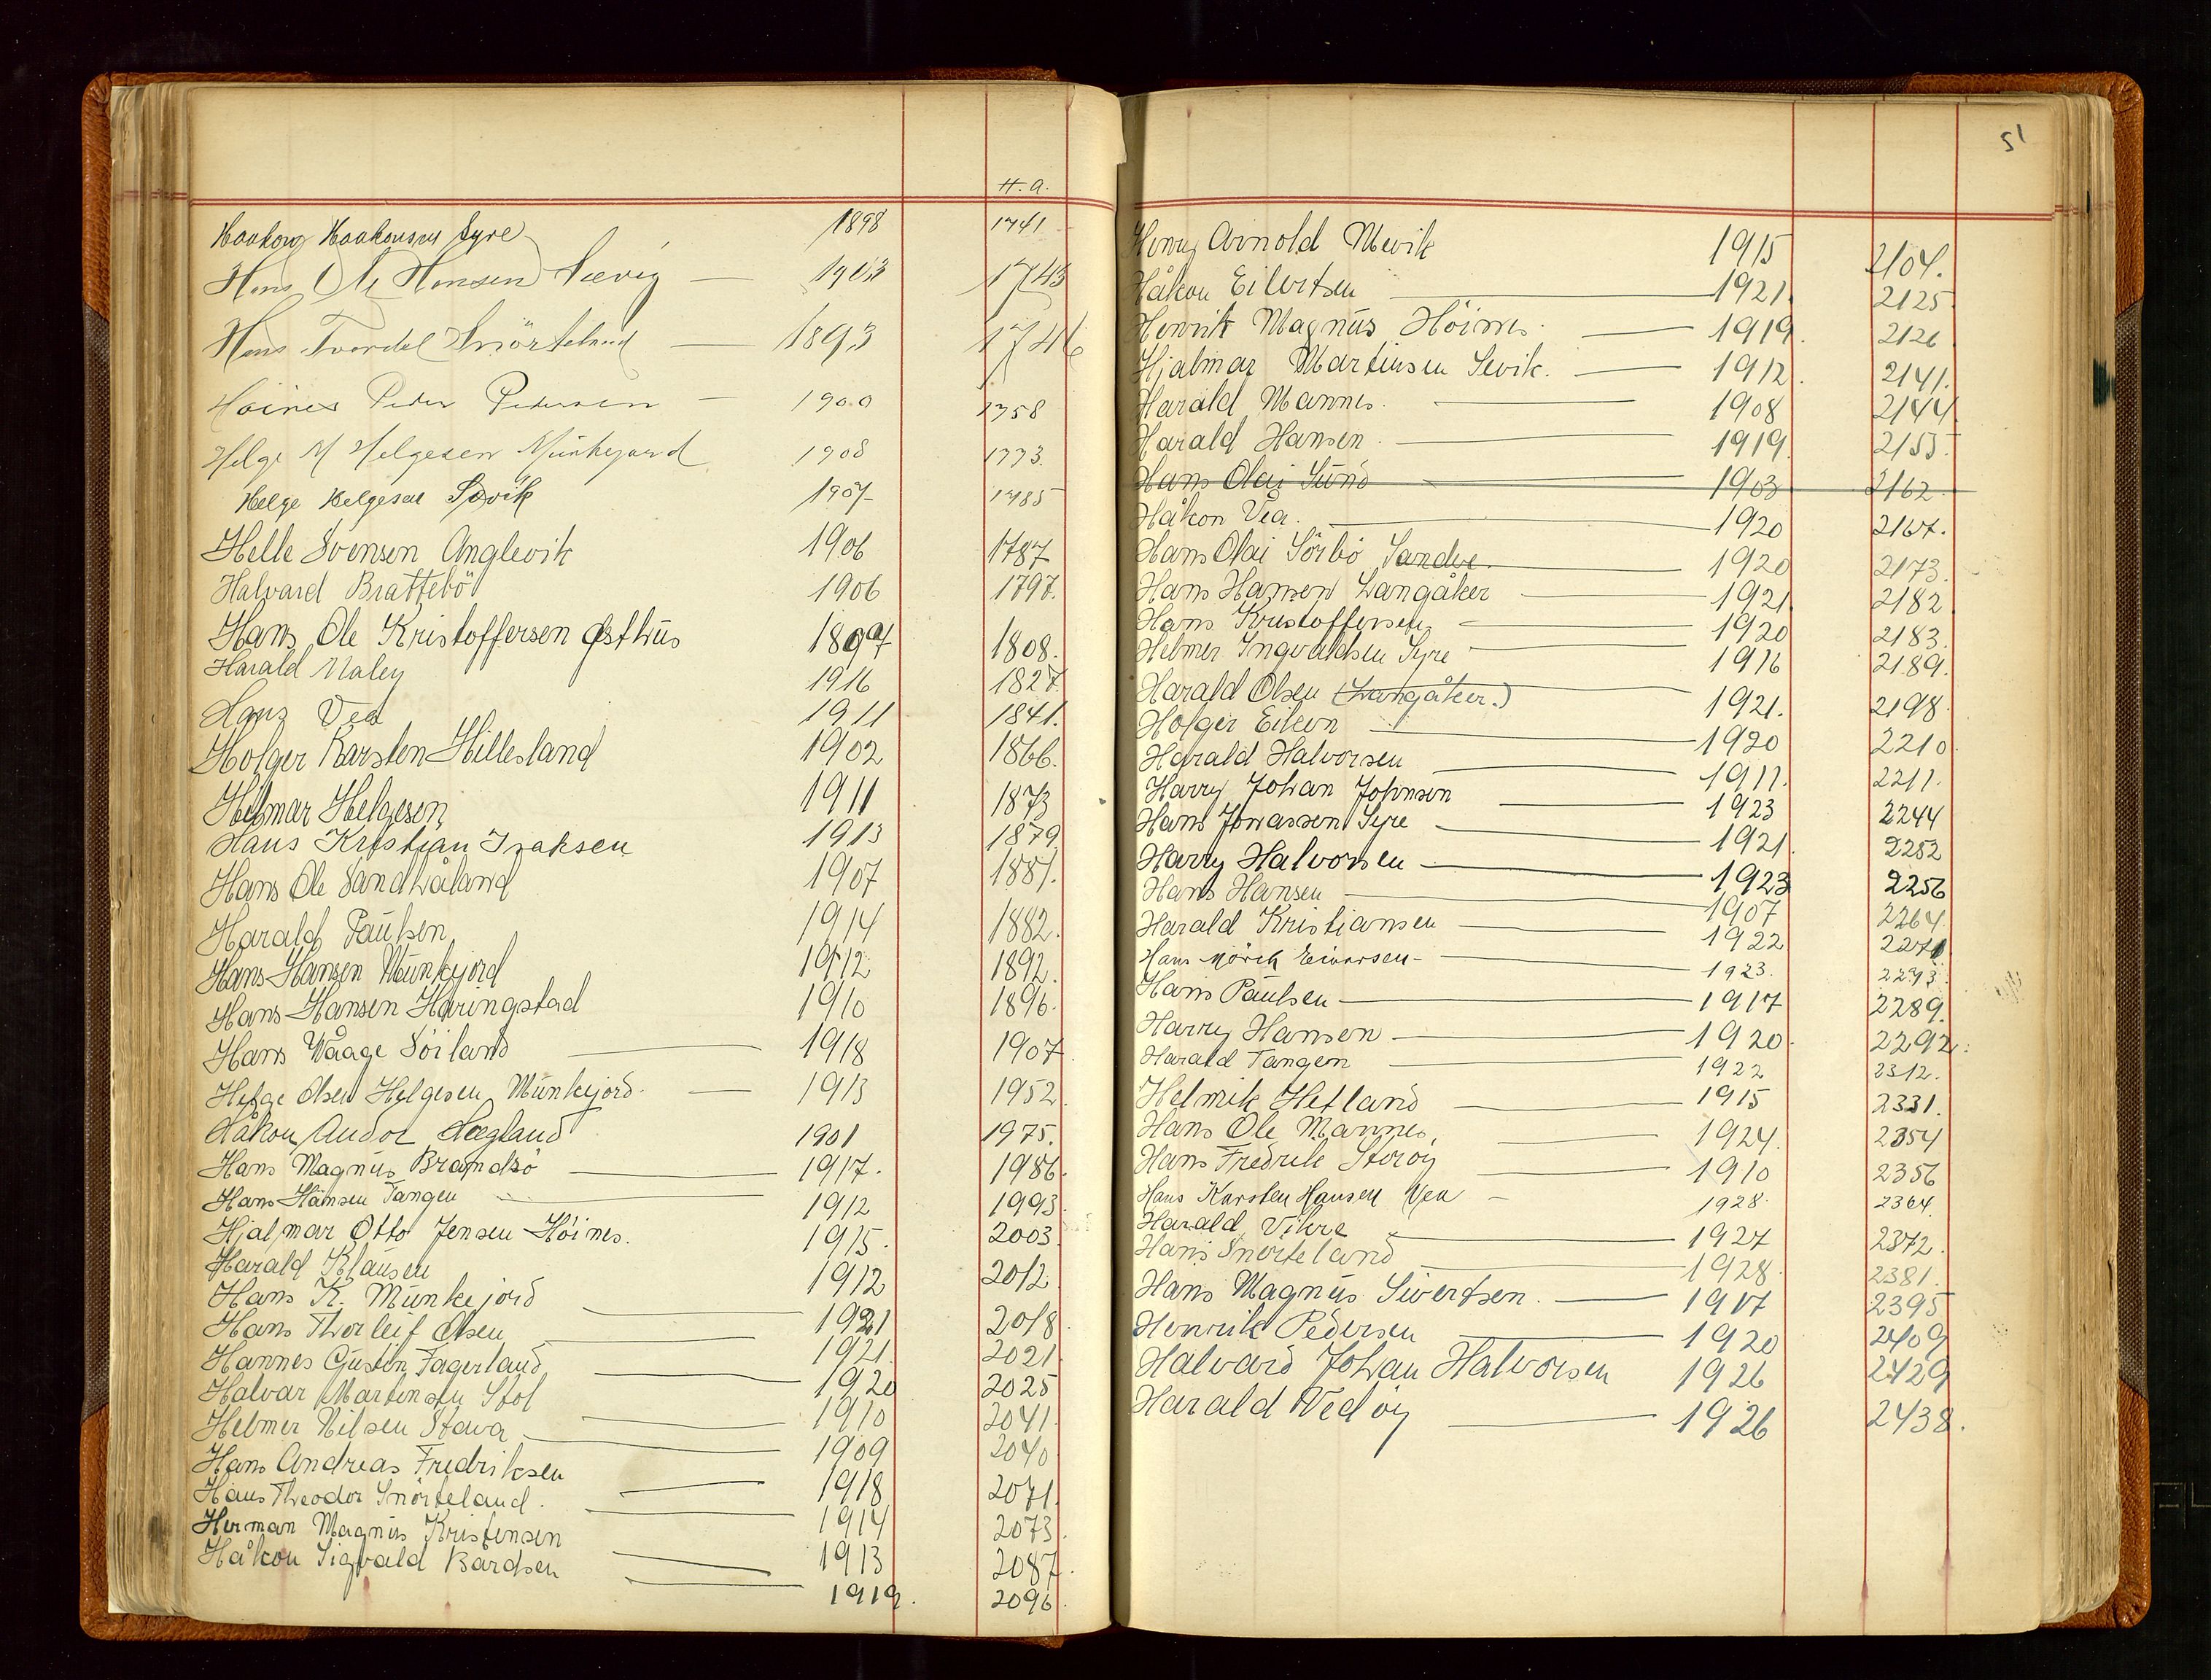 H.a.
Haakon Haakonsen Syre 1898 1741
Hans Ole Hansen Sævig — 1903 1743
Hans Tvordel Snörteland — 1893 1746
Höines Peder Pedersen — 1900 1758
Helge M Helgesen Munkejord 1908 1773.
Helge Helgesen Sævik 1907 1785
Helle Svensen Anglevik 1906 1787
Halvard Brattebö 1906 1797.
Hans Ole Kristoffersen Østhus 1897 1808.
Harald Naley 1916 1827.
Hans Vea 1911 1841.
Holger Karsten Hillesland 1902 1866.
Hilmar Helgesen 1911 1873
Hans Kristian Isaksen 1913 1879
Hans Ole Sandhåland 1907 1881.
Harald Paulsen 1914 1882.
Hans Hansen Munkejord 1912 1892.
Hans Hansen Häringstad 1910 1896.
Hans Waage Söiland — 1918 1907
Helge Olsen Helgesen Munkejord. — 1913 1952
Håkon Andor Hægland 1901 1975.
Hans Magnus Brandsö — 1917. 1986.
Hans Hansen Tangen — 1912 1993.
Hjalmar Otto Jensen Höines. 1915. 2003.
Harald Klausen 1912 2012
Hans K. Munkejord — 1921 2018
Hans Thorleif Olsen — 1921. 2021
Hannes Gustav Fagerland — 1920 2025
Halvar Martinsen Stol — 1910 2041.
Helmer Nilsen Stava — 1909 2040
Hans Andreas Fredriksen — 1918 2071.
Hans Theodor Snörteland. — 1914 2073.
Herman Magnus Kristensen — 1913 2087.
Håkon Sigvald Bårdsen — 1919. 2096.
51
Henry Arnold Mevik 1915 2104.
Håkon Eilertsen — 1921. 2125
Henrik Magnus Höines. — 1919. 2126
Hjalmar Martinsen Sevik. — 1912. 2141.
Harald Mannes. — 1908 2144
Harald Hansen. — 1919. 2155.
Hans Olai Sund — 1903 2162
Håkon Vea. — 1920 2167.
Hans Olai Sörbö Sandve. — 1920 2173.
Hans Hansen Langåker — 1921. 2182
Hans Kristoffersen — 1920 2183.
Helmer Ingvaldsen Syre — 1916 2189.
Harald Olsen (Langåker.) 1921. 2198
Holger Eiken — 1920 2210
Harald Halvorsen — 1911. 2211.
Harry Johan Johnsen — 1923 2244
Hans Jonassen Syre — 1921. 2252
Harry Halvorsen — 1923 2256
Hans Hansen — 1907 2264
Harald Kristiansen — 1922 2271
Hans Mörck Einarsen — 1923. 2273
Hans Paulsen — 1917 2289.
Harry Hansen — 1920. 2292.
Harald Tangen — 1922 2312.
Helmik Hetland — 1915 2331.
Hans Ole Mannes. — 1924. 2354
Hans Fredrik Storøy — 1910 2356
Hans Karsten Hansen Vea — 1928. 2364.
Harald Vikre — 1927 2372.
Hans Snorteland — 1928. 2381.
Hans Magnus Sivertsen. — 1917 2395
Henrik Pedersen — 1920 2409
Halvard Johan Halvorsen 1926 2429
Harald Vedøy — 1926 2438.